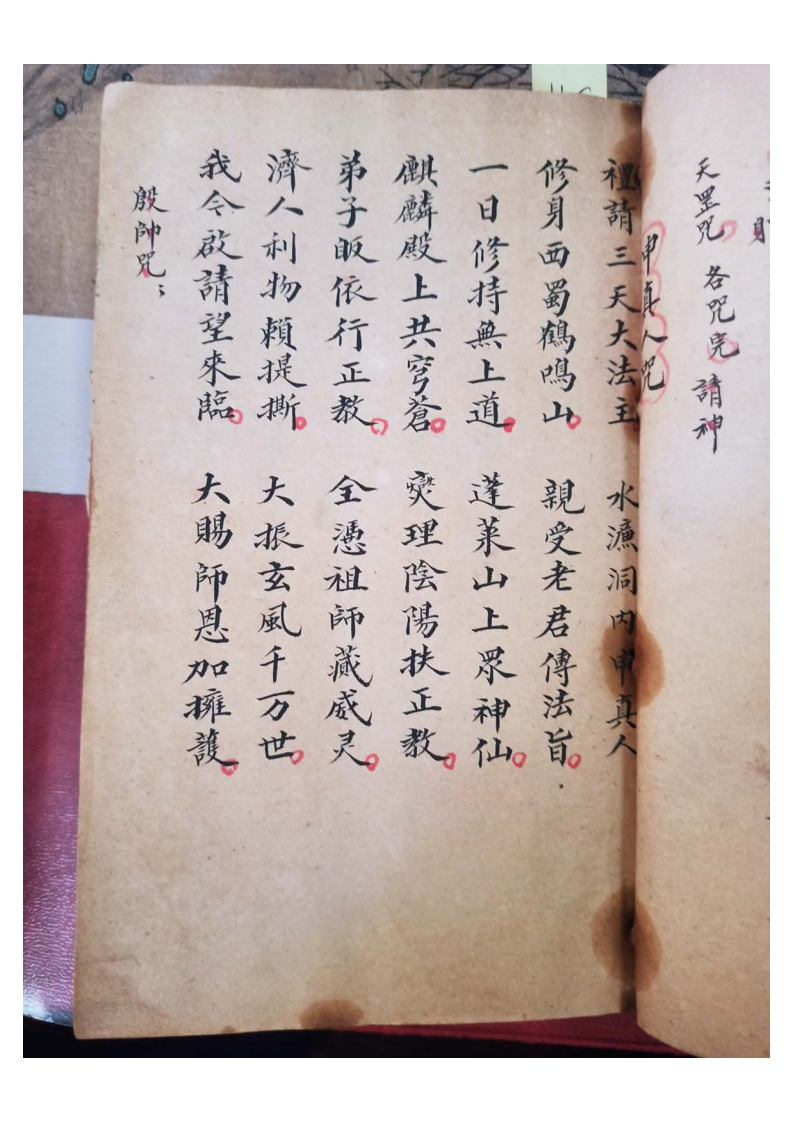 天罡咒 各咒完 請神
申真人咒
禮請三天大法主 水濂洞內申真人
修身西蜀鶴鳴山 親受老君傳法旨
一日修持無上道 蓬萊山上眾神仙
麒麟殿上共穹蒼 燮理陰陽扶正教
弟子皈依行正教 全憑祖師藏威灵
濟人利物賴提撕 大振玄風千万世
我今啟請望來臨 大賜師恩加擁護
殷帥咒